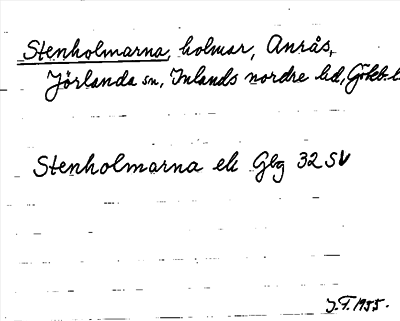 Stenholmarna, holmar, Anrås,
Jörlanda sn, Inlands nordre hd, Göteb. l
Stenholmarna ek Gbg 32 SV
J.F. 1955.